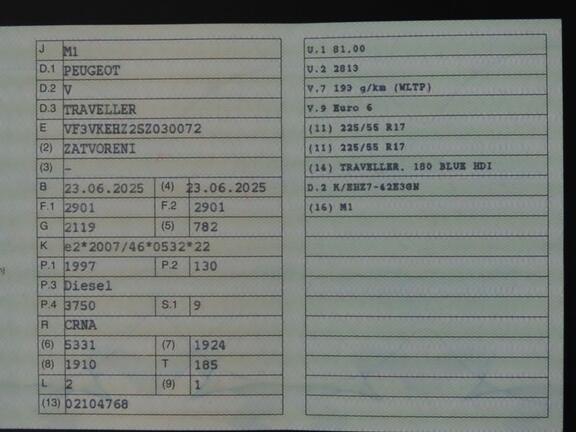 J M1
D.1 PEUGEOT
D.2 V
D.3 TRAVELLER
E VF3VKEHZ2SZ030072
(2) ZATVORENI
(3) –
B 23.06.2025 (4) 23.06.2025
F.1 2901 F.2 2901
G 2119 (5) 782
K e2*2007/46*0532*22
P.1 1997 P.2 130
P.3 Diesel
P.4 3750 S.1 9
R CRNA
(6) 5331 (7) 1924
(8) 1910 T 185
L 2 (9) 1
(13) 02104768
U.1 81.00
U.2 2813
V.7 193 g/km (WLTP)
V.9 Euro 6
(11) 225/55 R17
(11) 225/55 R17
(14) TRAVELLER, 180 BLUE HDI
D.2 K/EHZ7-42E3GN
(16) M1